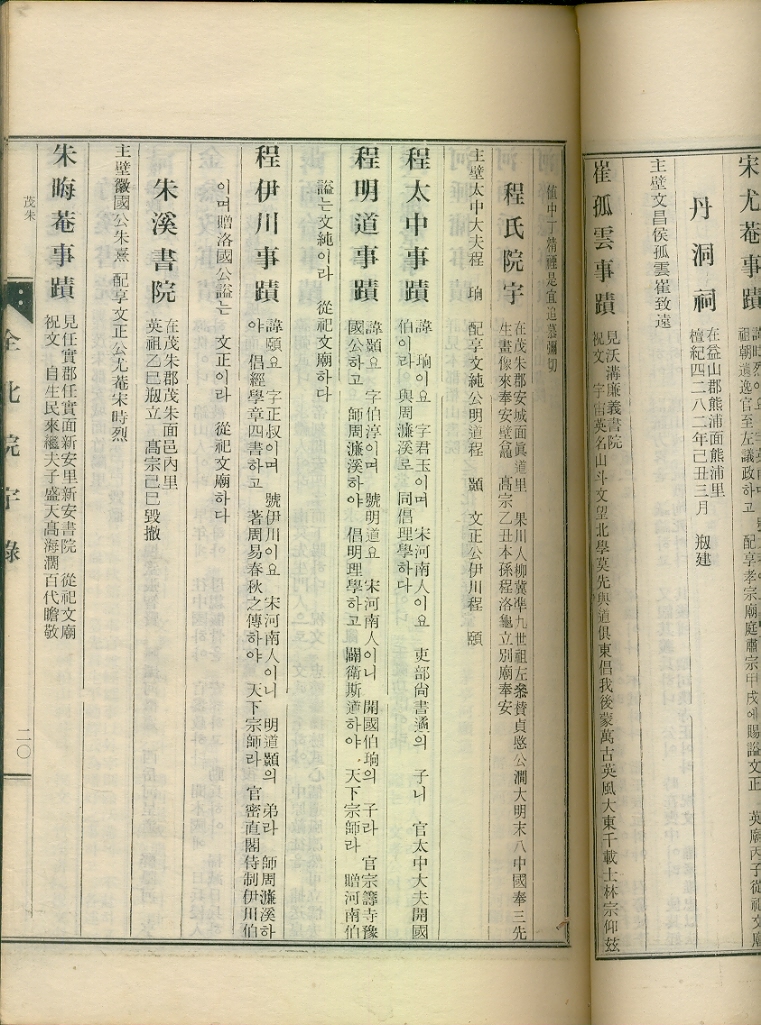 宋尤菴事蹟
祖朝遺逸官至左議政하고 配享孝宗廟庭肅宗甲戌에賜謚文正 英廟丙子從祀文廟
丹洞祠
在益山郡熊浦面熊浦里
檀紀四二八二年己丑三月 剏建
主壁文昌侯孤雲崔致遠
崔孤雲事蹟
見沃溝廉義書院
祝文 宇宙英名山斗文望北學莫先與道俱東倡我後蒙萬古英風大東千載士林宗仰玆
値中丁精禋是宜追慕彌切
程氏院宇
在茂朱郡安城面眞道里 果川人柳冀準九世祖左叅賛貞愍公澗大明末入中國奉三先
生畫像來奉安壁龕 高宗乙丑本孫程洛龜立別廟奉安
主壁太中大夫程 珦 配享文純公明道程 顥 文正公伊川程 頤
程太中事蹟
諱 珦이요 字君玉이며 宋河南人이요 吏部尙書遹의 子니 官太中大夫開國
伯이라 與周濂溪로 同倡理學하다
程明道事蹟
諱顥요 字伯淳이며 號明道요 宋河南人이니 開國伯珦의 子라 官宗簿寺豫
國公하고 師周濂溪하야 倡明理學하고 闢衛斯道하야 天下宗師라 贈河南伯
謚는文純이라 從祀文廟하다
程伊川事蹟
諱頤요 字正叔이며 號伊川이요 宋河南人이니 明道顥의 弟라 師周濂溪하
야 倡經學章四書하고 著周易春秋之傳하야 天下宗師라 官密直閣侍制伊川伯
이며贈洛國公謚는 文正이라 從祀文廟하다
朱溪書院
在茂朱郡茂朱面邑內里
英祖乙巳剏立 高宗己巳毀撤
主壁徽國公朱熹 配享文正公尤菴宋時烈
朱晦菴事蹟
見任實郡任實面新安里新安書院 從祀文廟
祝文 自生民來繼夫子盛天高海濶百代瞻敬
茂朱
全北院宇錄
二〇